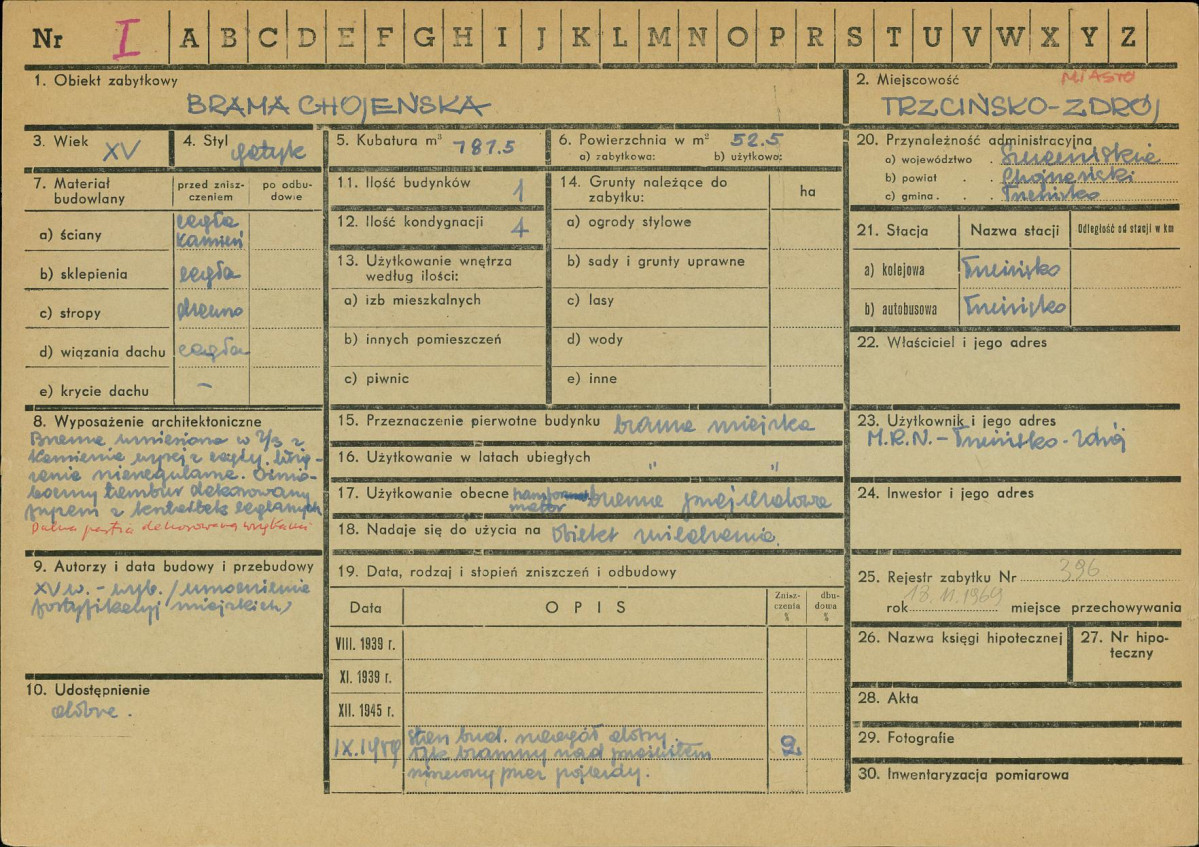 Nr I A B C D E F G H I J K L M N O P R S T U V W X Y Z
1. Obiekt zabytkowy
BRAMA CHOJEŃSKA
2. Miejscowość MIASTO
TRZCIŃSKO-ZDRÓJ
3. Wiek XV
4. Styl gotyk
5. Kubatura m³ 787.5
6. Powierzchnia w m² 52.5
a) zabytkowa: b) użytkowa:
20. Przynależność administracyjna
a) województwo . Szczecińskie
b) powiat . . Chojeński
c) gmina . . Trzcińsko
7. Materiał budowlany
przed zniszczeniem
po odbudowie
a) ściany cegła
kamień
b) sklepienia cegła
c) stropy drewno
d) wiązania dachu cegła
e) krycie dachu –
11. Ilość budynków 1
12. Ilość kondygnacji 4
13. Użytkowanie wnętrza
według ilości:
a) izb mieszkalnych
b) innych pomieszczeń
c) piwnic
14. Grunty należące do
zabytku: ha
a) ogrody stylowe
b) sady i grunty uprawne
c) lasy
d) wody
e) inne
21. Stacja
Nazwa stacji
Odległość od stacji w km
a) kolejowa Trzcińsko
b) autobusowa Trzcińsko
22. Właściciel i jego adres
8. Wyposażenie architektoniczne
Brama wzniesiona w 2/3 z
kamienia wyżej z cegły.
nieregularne. Ośmio-
boczny tambur dekorowany
fryzem z kształtek ceglanych
Dolna partia dekorowana wnękami
15. Przeznaczenie pierwotne budynku brama miejska
16. Użytkowanie w latach ubiegłych " "
17. Użytkowanie obecne brama przejazdowa
18. Nadaje się do użycia na obiekt zwiedzania.
23. Użytkownik i jego adres
M.R.N. – Trzcińsko-Zdrój
24. Inwestor i jego adres
9. Autorzy i data budowy i przebudowy
XV w. – wyb. /umocnienie
fortyfikacyj miejskich/
10. Udostępnienie
dobre.
19. Data, rodzaj i stopień zniszczeń i odbudowy
Data
OPIS
Zniszczenia %
dbudowa %
VIII. 1939 r.
XI. 1939 r.
XII. 1945 r.
IX.1959 stan bud. naogół dobry. 2
łęk bramny nad przejazdem
niszczony przez pojazdy.
25. Rejestr zabytku Nr 396
rok 18.11.1969 miejsce przechowywania
26. Nazwa księgi hipotecznej
27. Nr hipoteczny
28. Akta
29. Fotografie
30. Inwentaryzacja pomiarowa